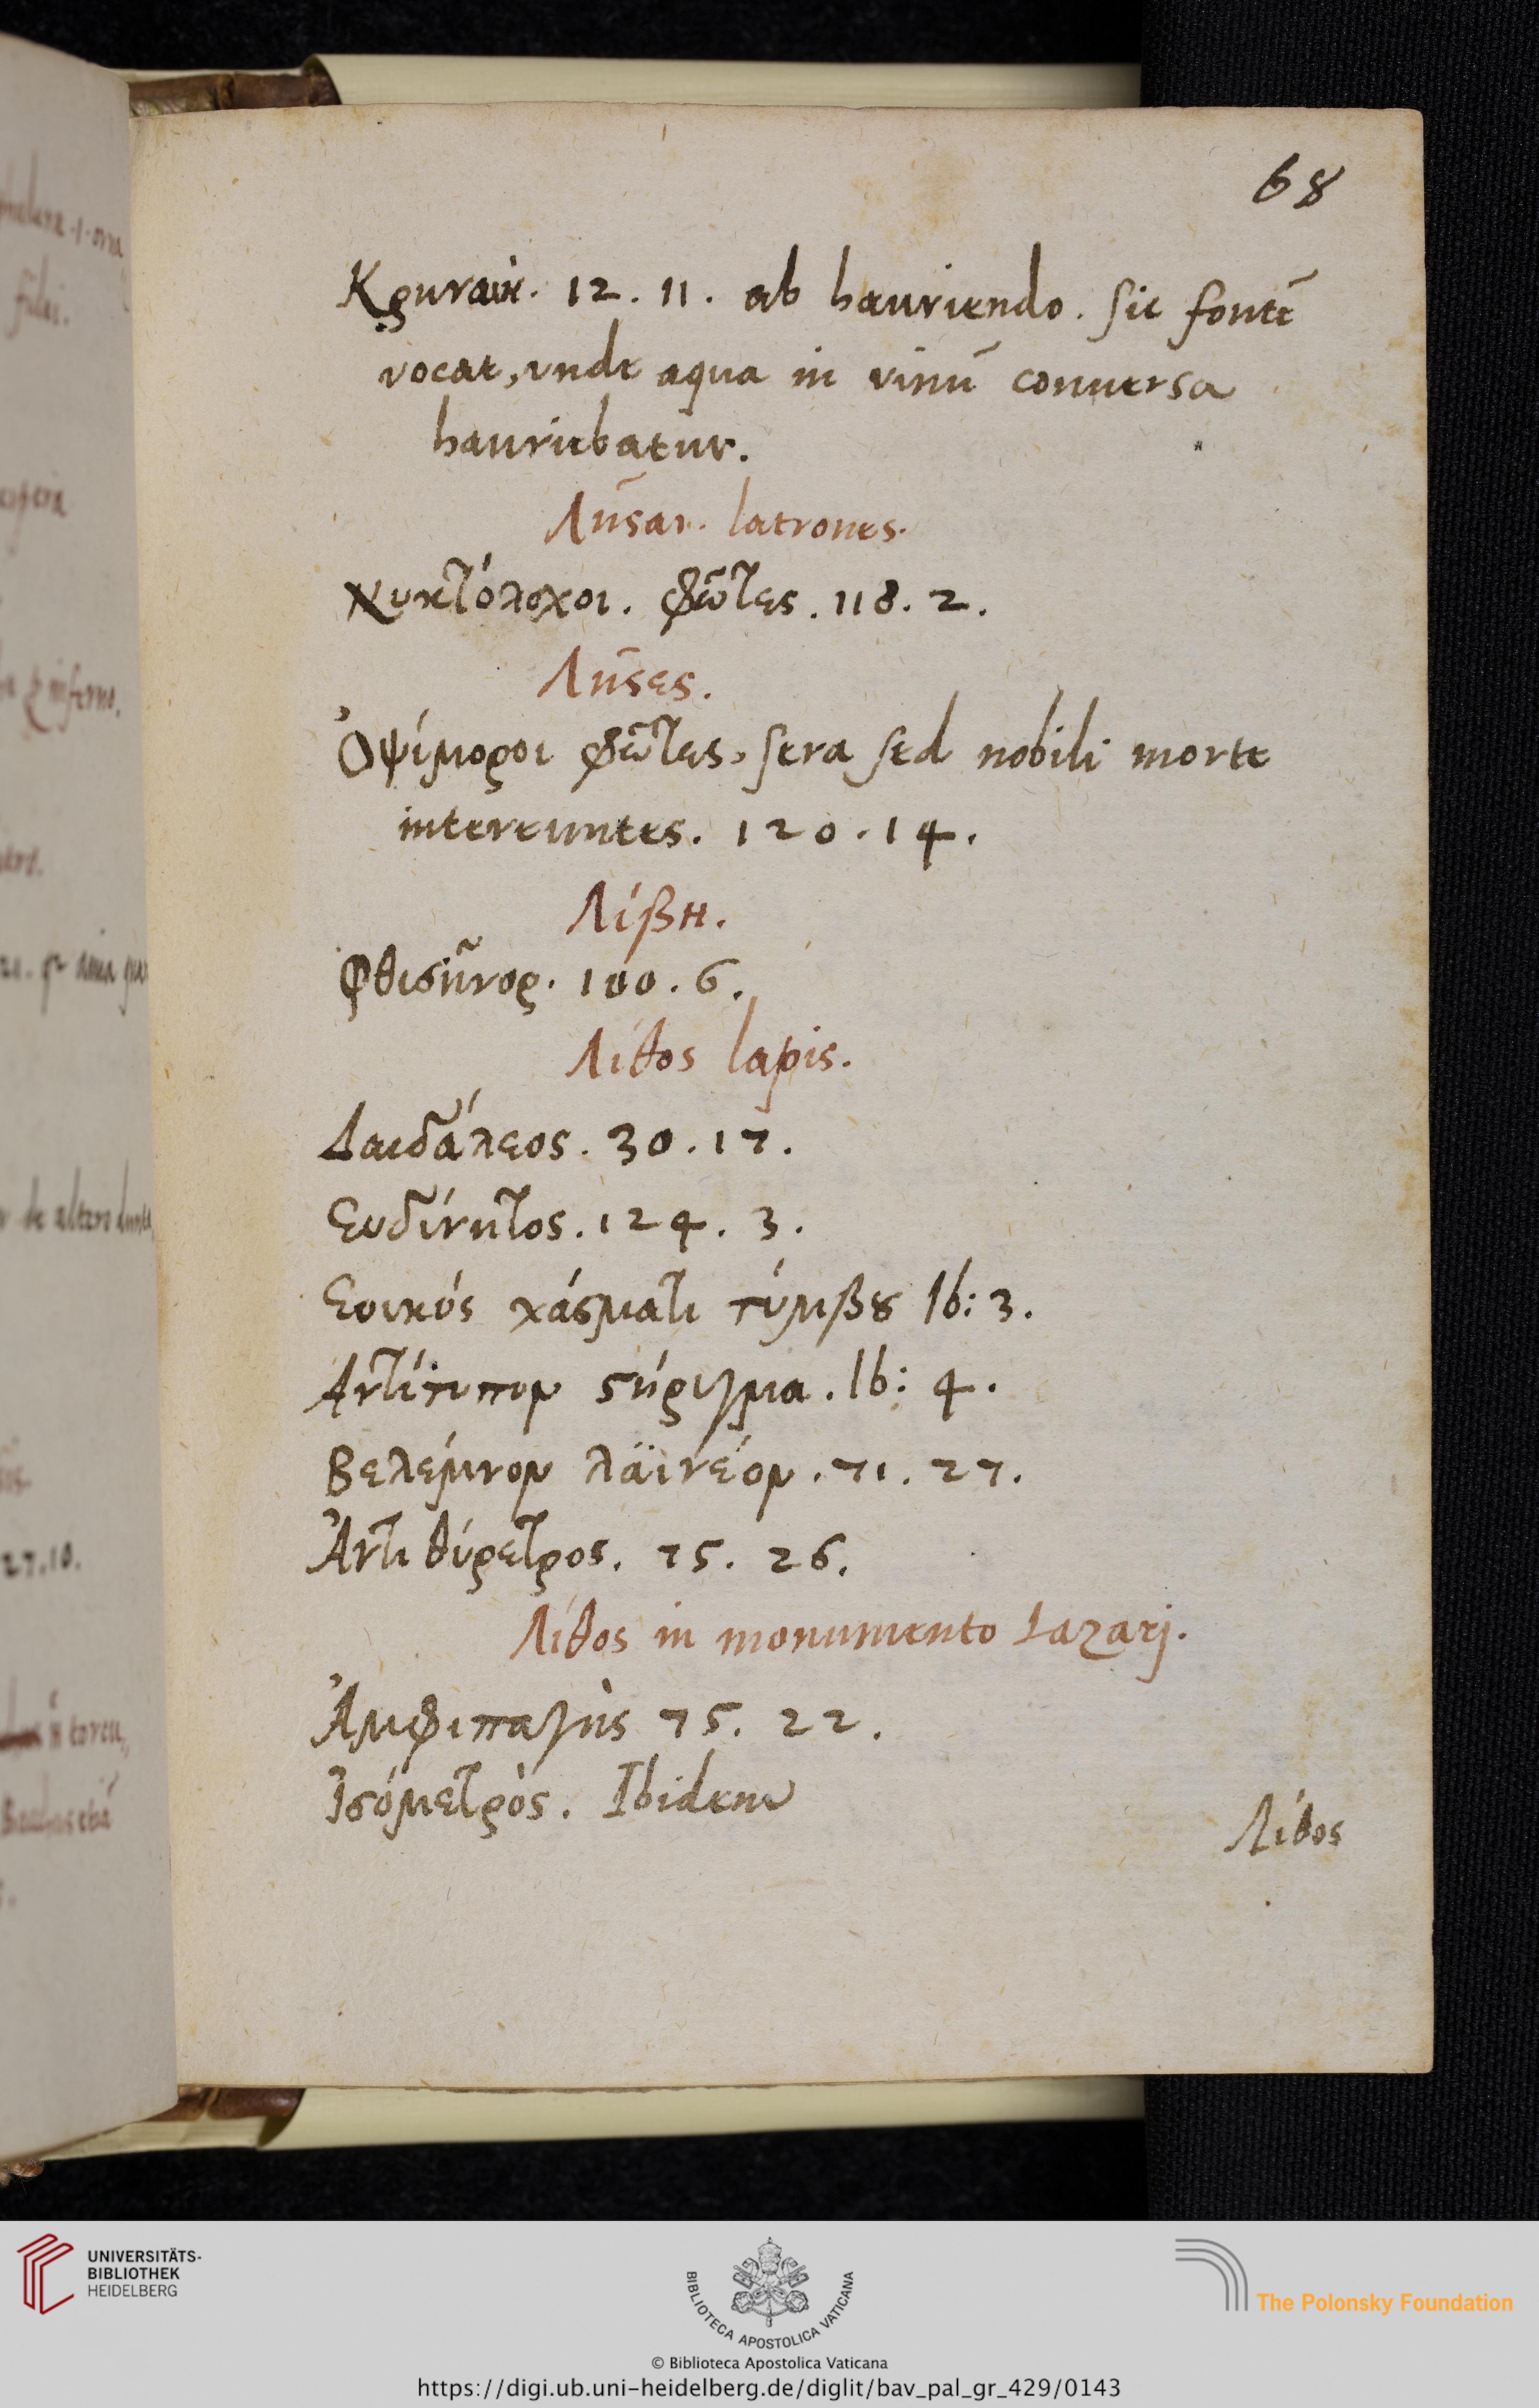 68
Κρηναίη. 12. 11. ab hauriendo. sic fontē
vocat, vnde aqua in vinū conuersa
hauriebatur.
Λῃσαι. latrones.
Νυκτόλοχοι. φῶτες. 118. 2.
Λῃσες.
Ὀψίμοροι φῶτες, sera sed nobili morte
intereuntes. 120. 14.
Λίβη.
Φθισῆνορ. 100. 6.
Λίθος lapis.
Δαιδάλεος. 30. 17.
Ευδίνητος. 124. 3.
Εοικός χάσματι τύμβȣ Ib: 3.
Αντίτυπον ϛήριγμα. Ib: 4.
Βελέμνον λαϊνέον. 71. 27.
Ἀντιθύρετρος. 75. 26.
Λίθος in monumento Lazarj.
Ἀμφιπαγὴς 75. 22.
Ἰσόμετρὸς. Ibidem
Λίθος
27.10.
UNIVERSITÄTS-
BIBLIOTHEK
HEIDELBERG
BIBLIOTECA APOSTOLICA VATICANA
The Polonsky Foundation
© Biblioteca Apostolica Vaticana
https://digi.ub.uni-heidelberg.de/diglit/bav_pal_gr_429/0143